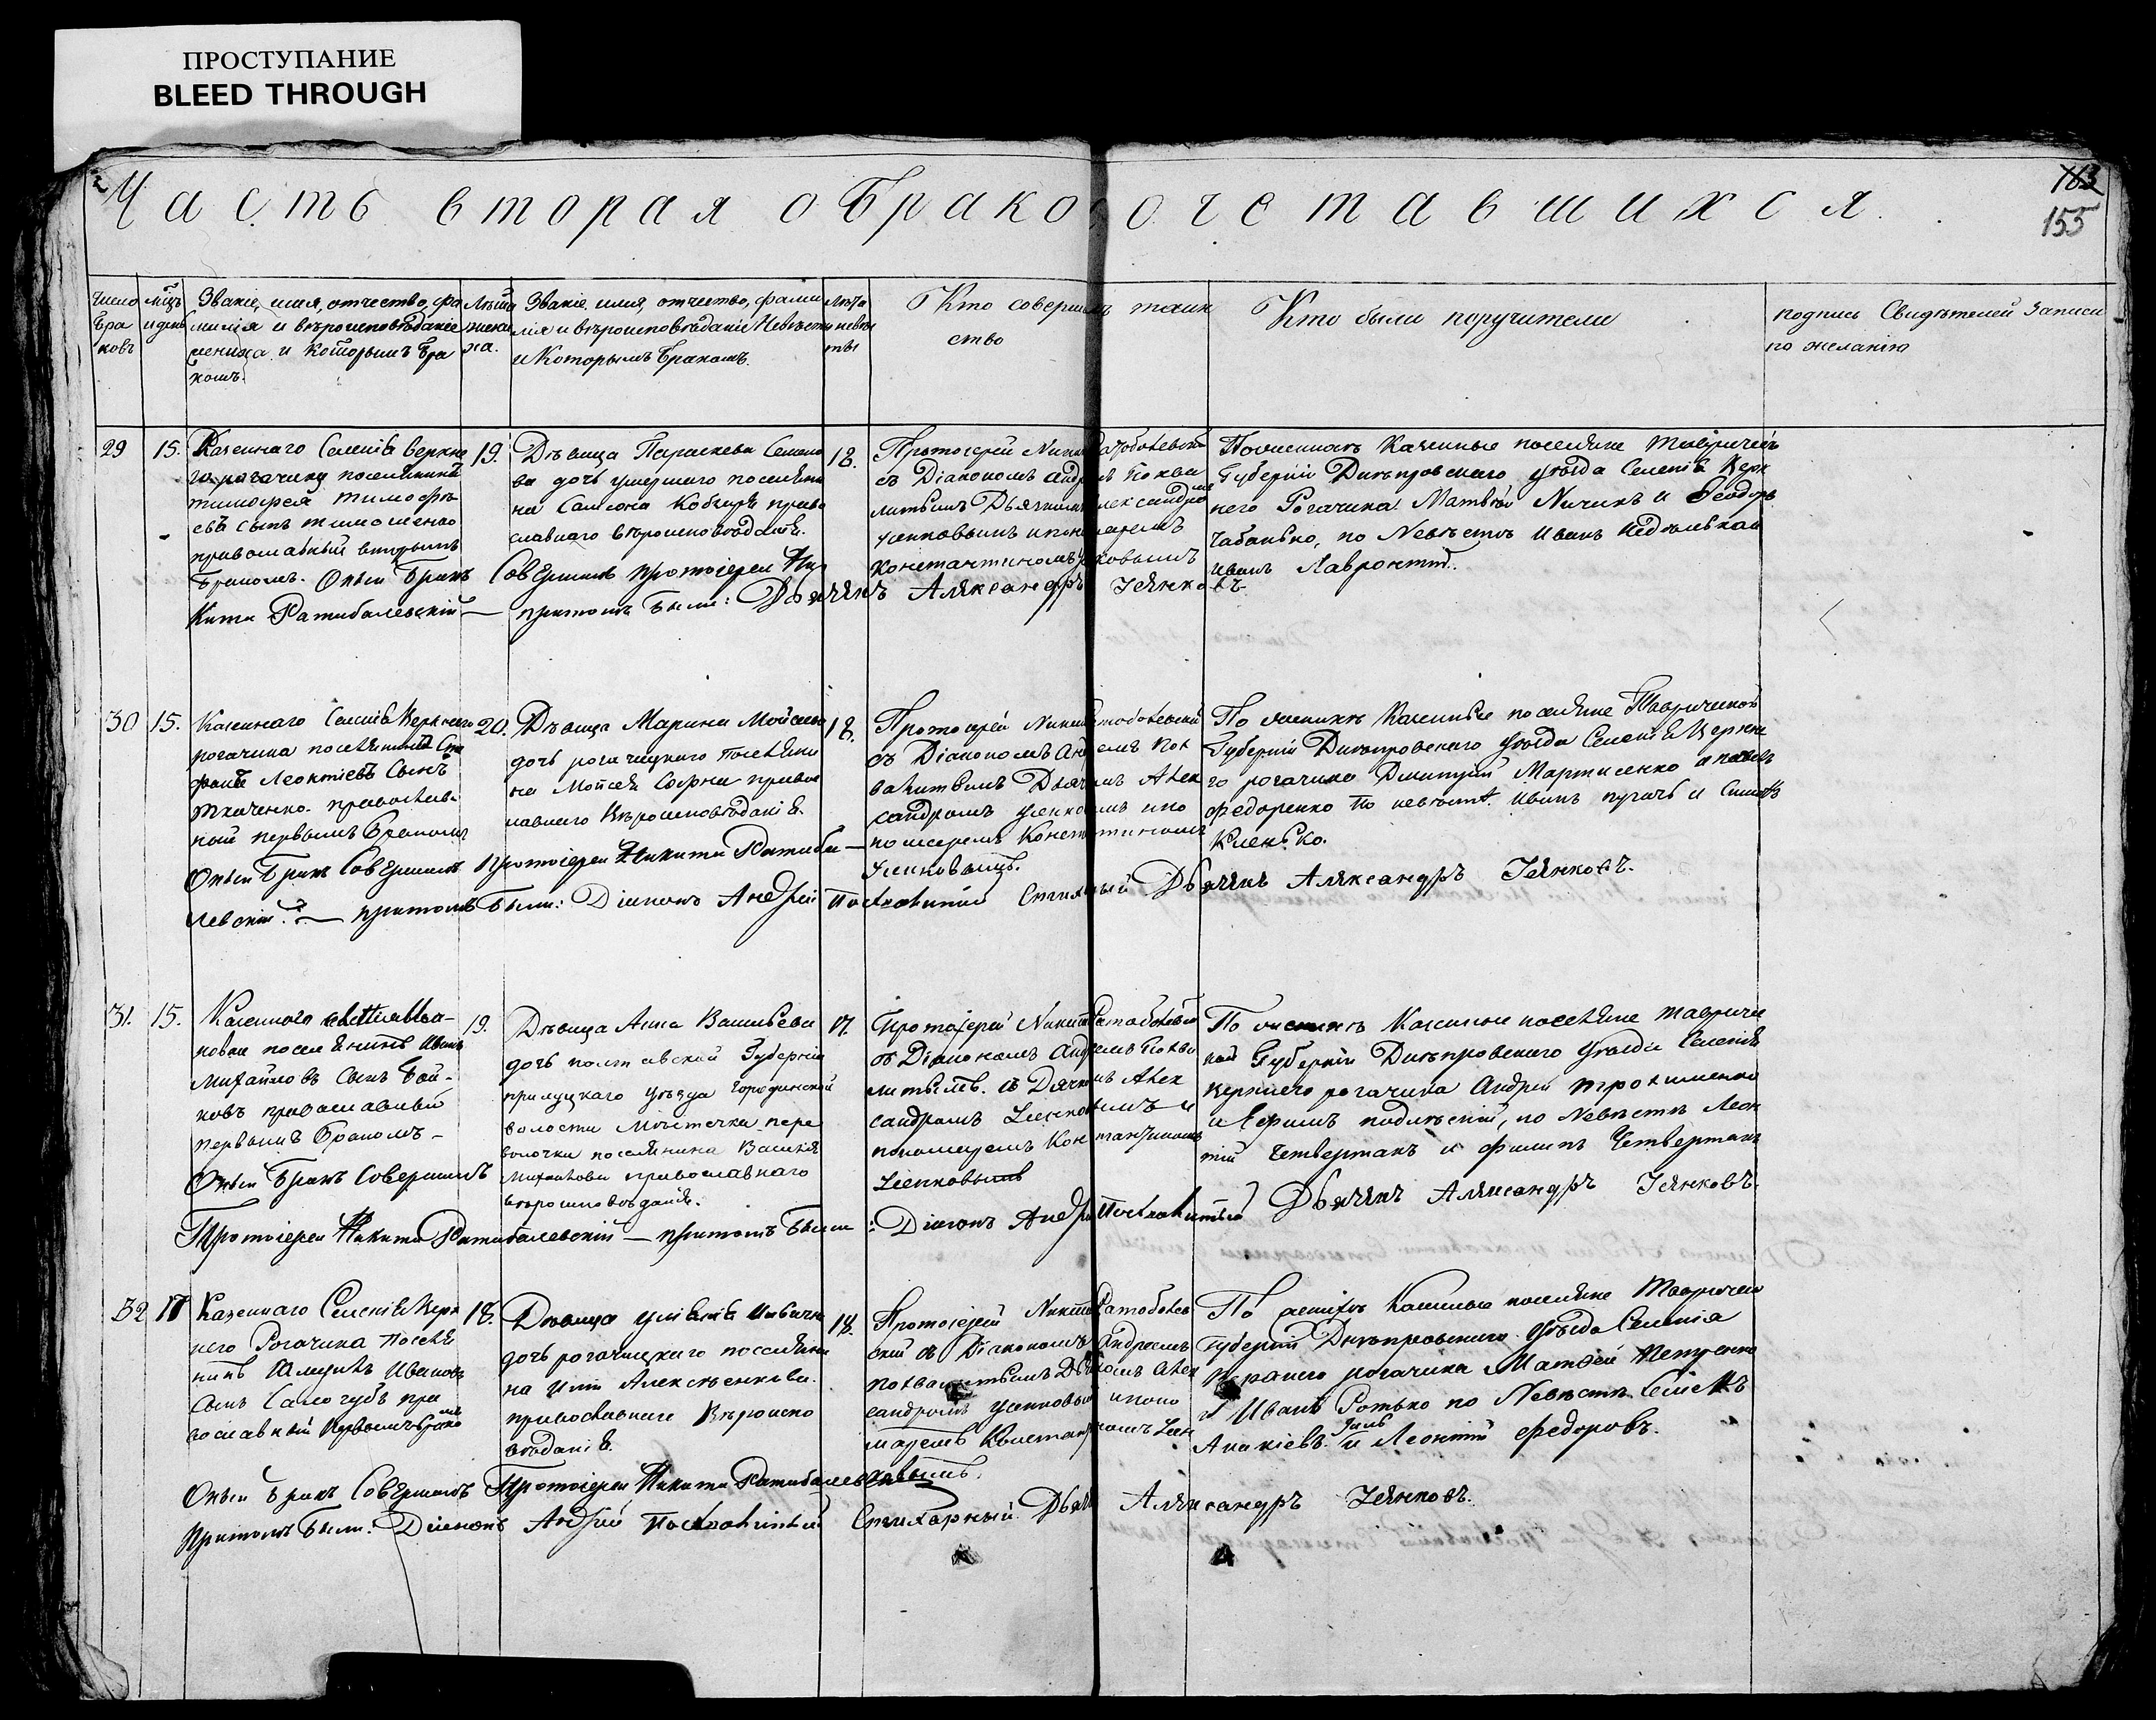 ПРОСТУПАНИЕ
BLEED THROUGH
Часть вторая о Бракосочетавшихся.
163
155
Число бра ковъ
мцъ и день
Званіе, имя, отчество, фа
милія и вѣроисповѣданіе
жениха и которымъ бра
комъ.
Лѣта жени ха.
Званіе, имя, отчество, фами
лія и вѣроисповѣданіе Невѣсты
и Которымъ бракомъ.
Лѣта невѣ сты
Кто совершилъ таин
ство
Кто были поручители
подпись Свидѣтелей записи
по желанію
29
15.
Казеннаго Селенія Верхня
го рогачику поселянинъ
тимофея тимофѣ
евъ сынъ
православный вторымъ
Бракомъ.
19.
Дѣвица Параскева Семено
ва дочь умершаго поселяни
на Самсона Кобзаря право
славнаго вѣроисповѣданія.
18.
Протоіерей Никита Ратоболевский
съ Діакономъ Андреемъ Похва
литымъ Дьячкомъ Александромъ
усенковымъ и пономаремъ
Константиномъ усенковымъ
По женихѣ Казенные поселяне Тавричес
Губерніи Днѣпровскаго уѣзда Селенія Верх
него Рогачика Матвѣй Кичикъ и Феодоръ
Чабанько, по Невѣстѣ Иванъ
Иванъ Лавронтій.
Оный Бракъ Совершилъ протоіерей Ни
кита Ратиболевскій — притомъ были: Дьячекъ Александръ Усенковъ.
30
15.
Казеннаго Селенія Верхнего
рогачика поселянинъ Сте
фанъ Леонтіевъ Сынъ
Ткаченко православ
ный первымъ Бракомъ
20.
Дѣвица Марина Мойсеева
дочь рогачицкаго поселяни
на Мойсея Софри право
славнаго Вѣроисповѣданія.
18.
Протоіерей Никита Ратоболевский
съ Діакономъ Андреемъ Пох
валитымъ Дьячкомъ Алек
сандромъ усенковымъ и по
номаремъ Константиномъ
Усенковымъ.
По женихѣ Казенные поселяне Тавричиской
Губерніи Днѣпровскаго Уѣзда Селенія Верхня
го рогачика Дмитрій Мартисенко и павелъ
федоренко По невѣстѣ. Иванъ пугачъ и
Кленько.
Оный Бракъ Совершилъ Протоіерей Никита Ратибо—
левскій. — притомъ Были: Діаконъ Андрей Похвалитый Стихарный Дьячекъ Александръ Усенковъ.
31.
15.
Казенного
поселянинъ Иванъ
Михайловъ Сынъ Бой-
ковъ православный
первымъ Бракомъ
19.
Дѣвица Анна Васильева
дочь полтавской Губерніи
прилуцкаго уѣзда Городинской
волости Мѣстечка пере
волочки поселянина Василія
Михайлова православнаго
вѣроисповѣданія.
17.
Протоіерей Никита Ратоболевский
съ Діакономъ Андреемъ Похва
литымъ. съ Дячкомъ Алек
сандромъ Усенковымъ и
пономаремъ Константиномъ
Усенковымъ
По женихѣ Казенные поселяне Тавричес
кой Губерніи Днѣпровскаго уѣзда Селенія
верхнего рогачика Андрей трохименко
и Ефимъ подлѣсный, по Невѣстѣ Леон
тій Четвертакъ и филипъ Четвертакъ
Оный Бракъ Совершилъ
Протоіерей Никита Ратиболевскій — притомъ Были: Діаконъ Андрей Похвалитый Дьячекъ Александръ Усенковъ.
32
17
Казеннаго Селенія Верх
него Рогачика Поселя
нинъ Иванов
Сынъ Самогубъ пра
вославный Первымъ Брако
мъ
18.
Дѣвица уліанія
дочь рогачицкаго поселяни
на Алексѣенкова.
православнаго Вѣроиспо
вѣданія.
18.
Протоіерей Никита Ратоболев
ский съ Діакономъ Андреемъ
Похвалитымъ Дьячкомъ Алек
сандромъ усенковымъ и поно
маремъ Константиномъ Усен
ковымъ.
По женихѣ Казенные поселяне Тавричес
Губерніи Днѣпровскаго уѣзда Селенія
Верхнего рогачика Матвѣй Петренко
и Иванъ Ротько по Невѣстѣ
Ананіевъ и Леонтій Федоровъ.
Оный Бракъ Совершилъ Протоіерей Никита Ратиболевскій
Притомъ Были: Діаконъ Андрей Похвалитый Стихарный Дьячекъ Александръ Усенковъ.